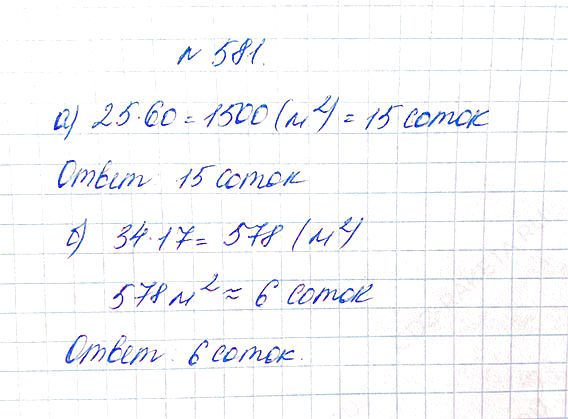 № 581.
а) 25·60 = 1500 (м²) = 15 соток
Ответ 15 соток
б) 34·17 = 578 (м²)
578 м² ≈ 6 соток
Ответ. 6 соток.